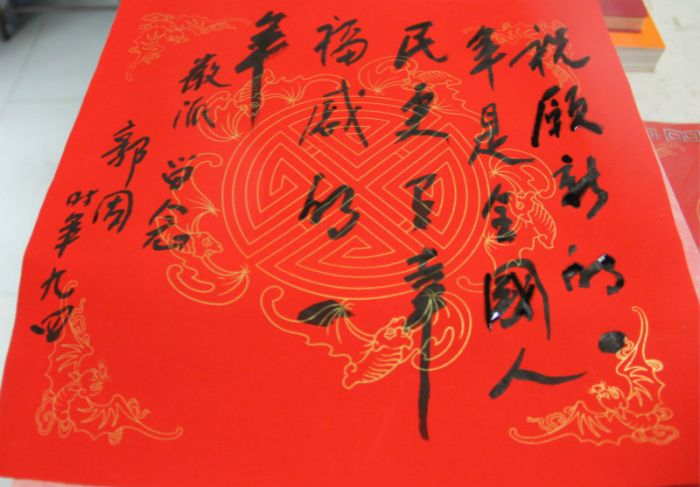 祝願新的一
年是全國人
民更幸
福感的一
年
留念
郭周
时年九四